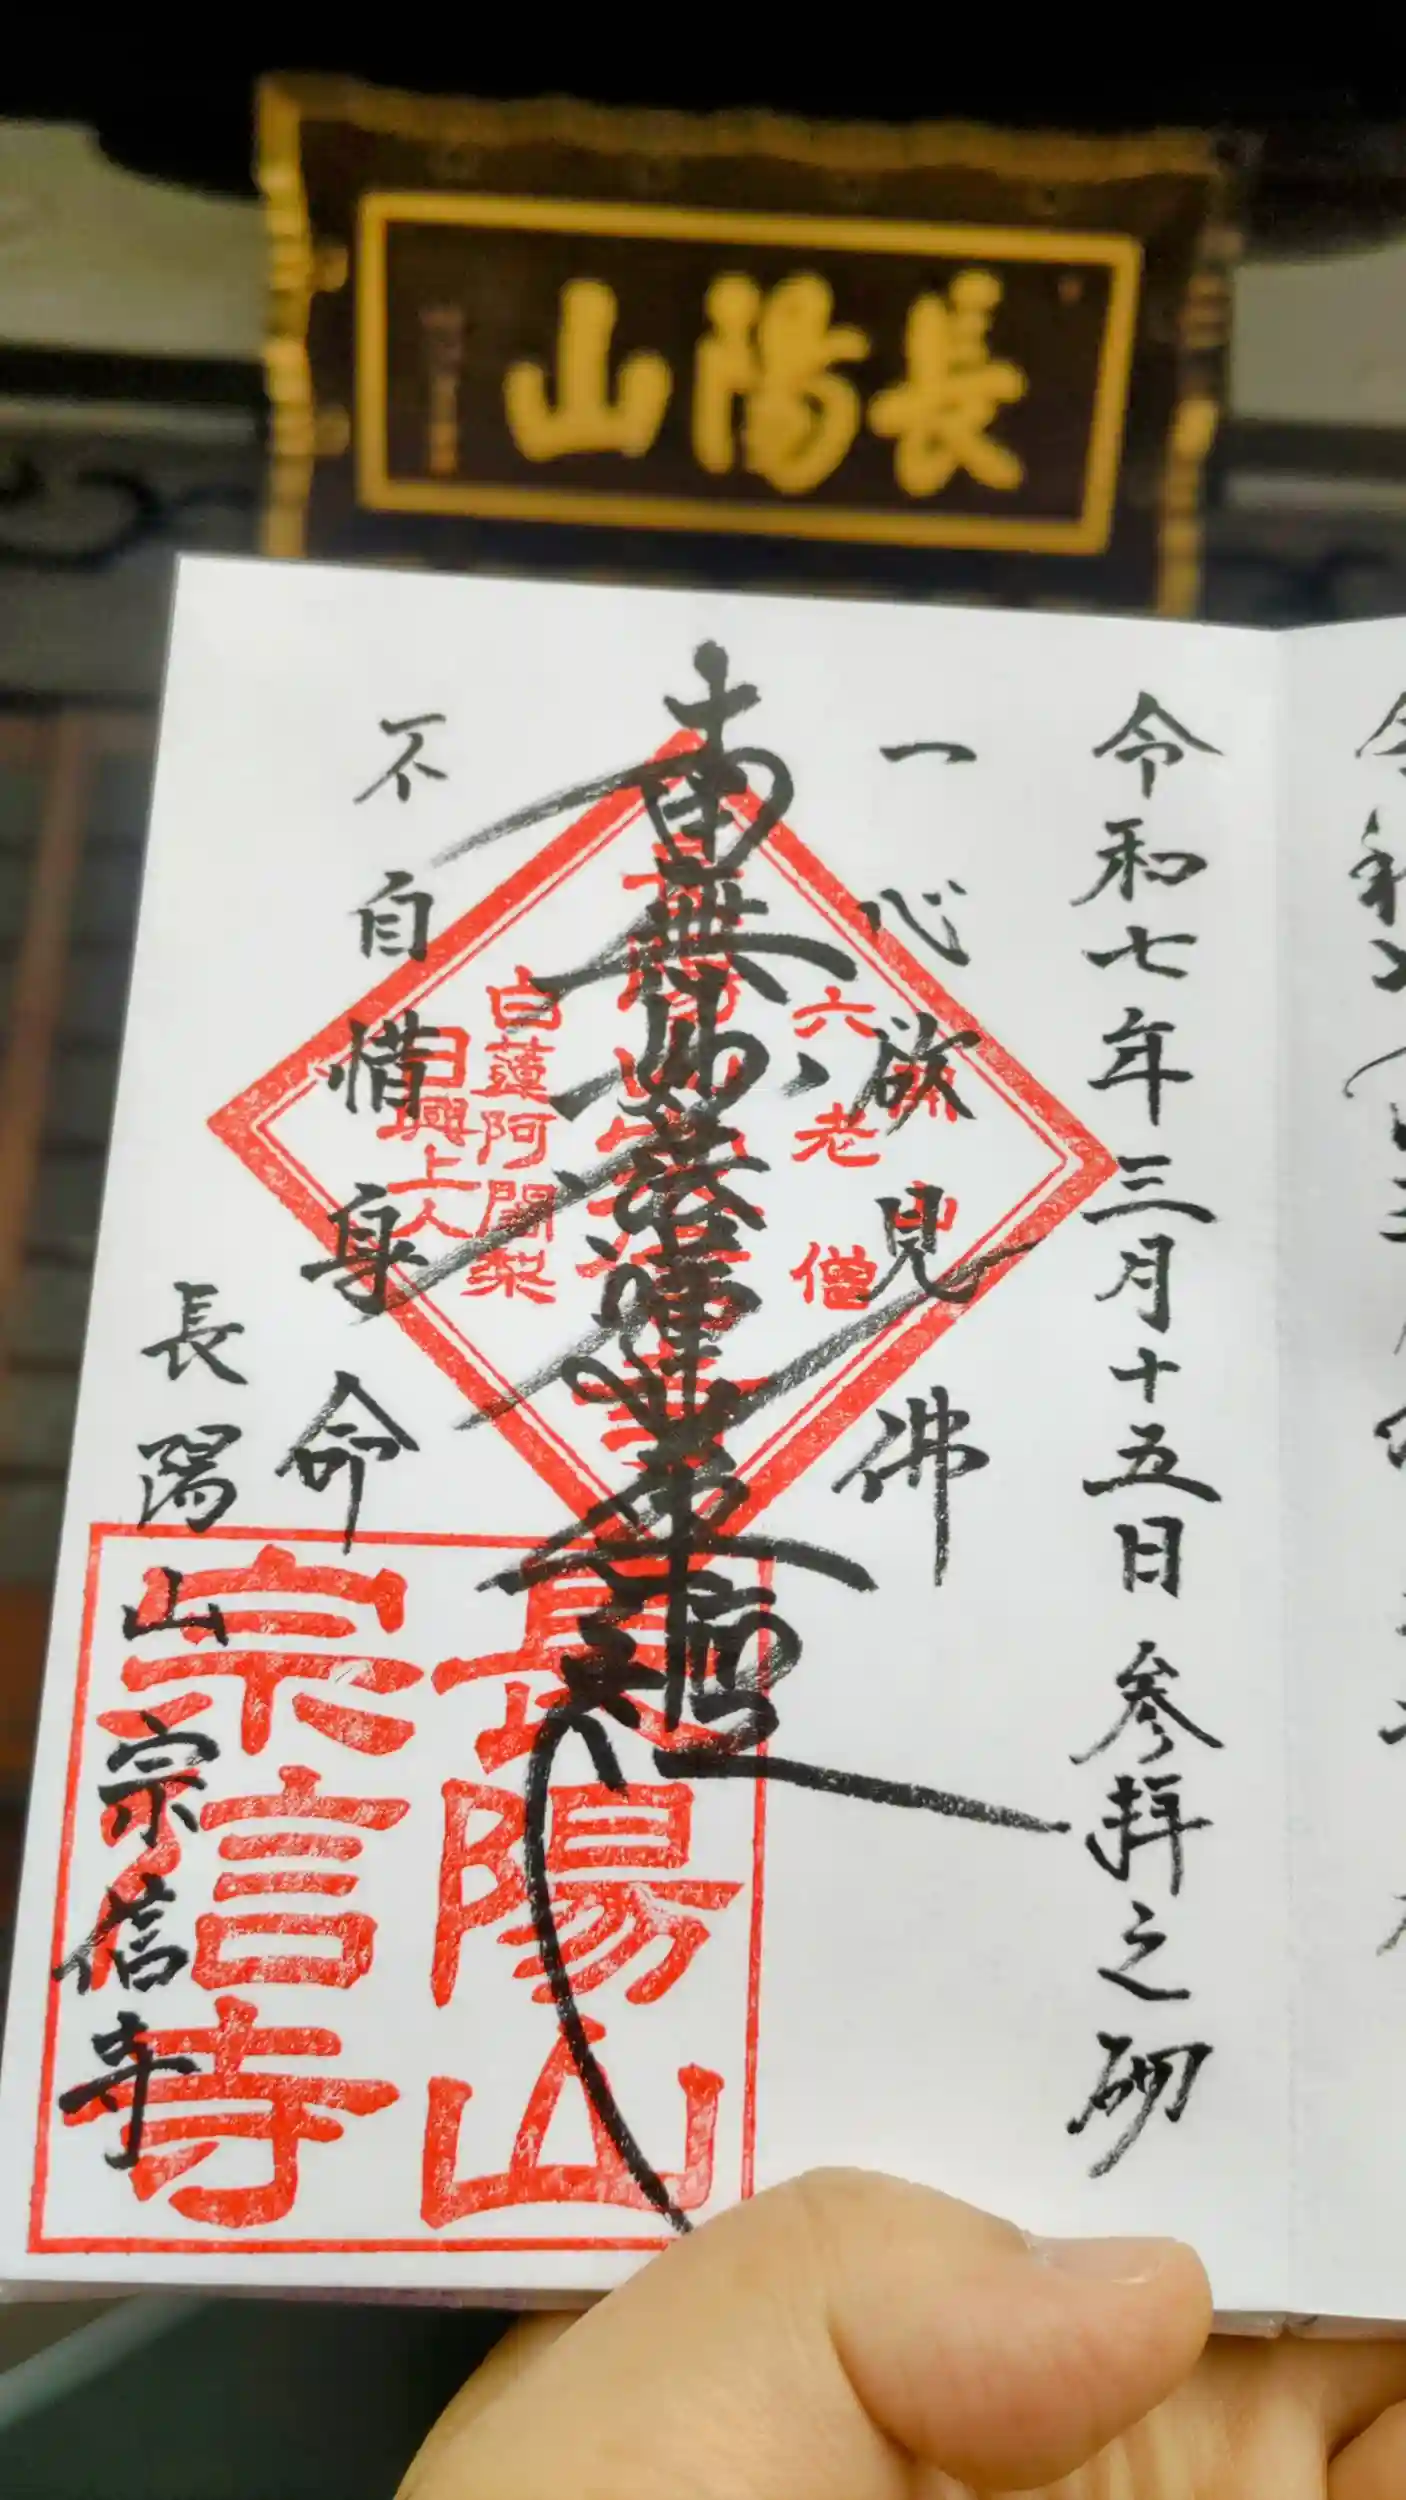 長陽山
令和七年三月十五日 参拝之砌
一心欲見佛
南無妙法蓮華経
不自惜身命
長陽山宗信寺
六老僧
白蓮阿闍梨
日興上人
長陽山
宗信寺